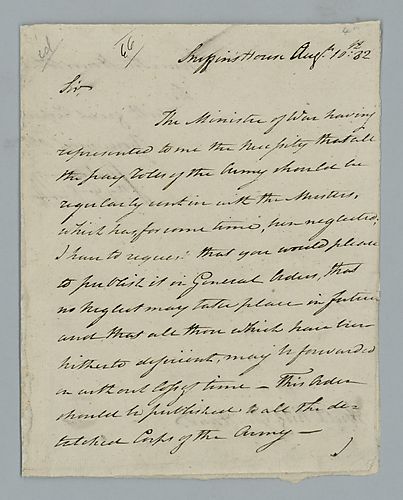 66
Sniffin's House Augt. 10th. 82
Sir
The Minister of War having
represented to me the necessity that all
the pay roles of the Army should be
regularly sent in with the Musters,
which has, for some time, been neglected;
I have to request that you would please
to publish it in General Orders, that
no neglect may take place in future
and that all those which have been
hitherto deficient, may be forwarded
on without loss of time — This Order
should be published to all the de-
tatched Corps of the Army —